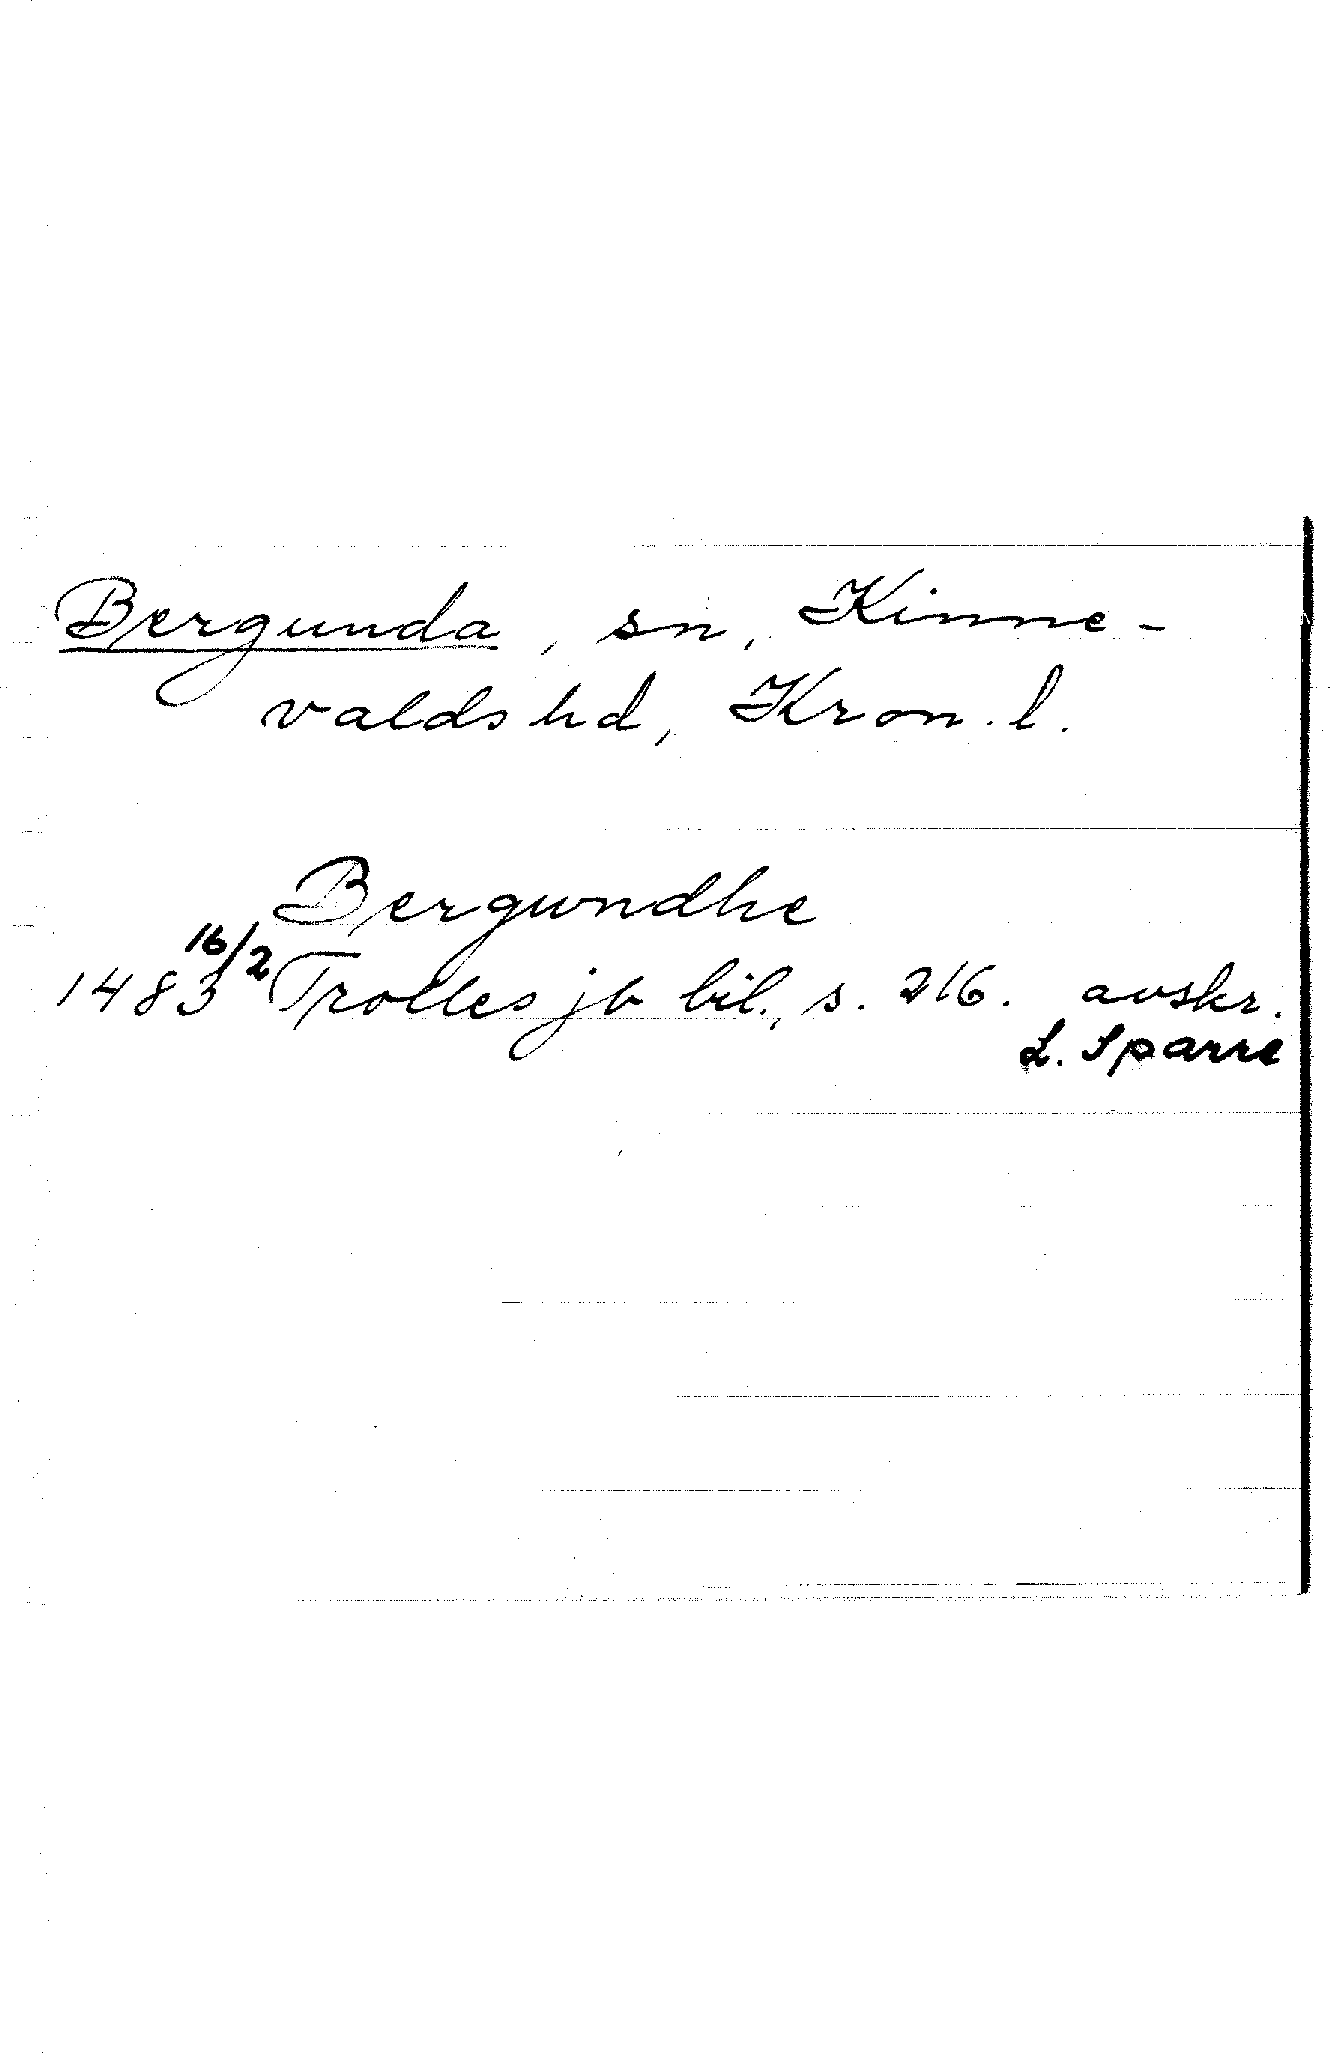 Bergunda, sn, Kinne-
valds hd, Kron. l.
Bergwndhe
1483 16/2 Trolles jb bil., s. 216. avskr.
L. Sparre